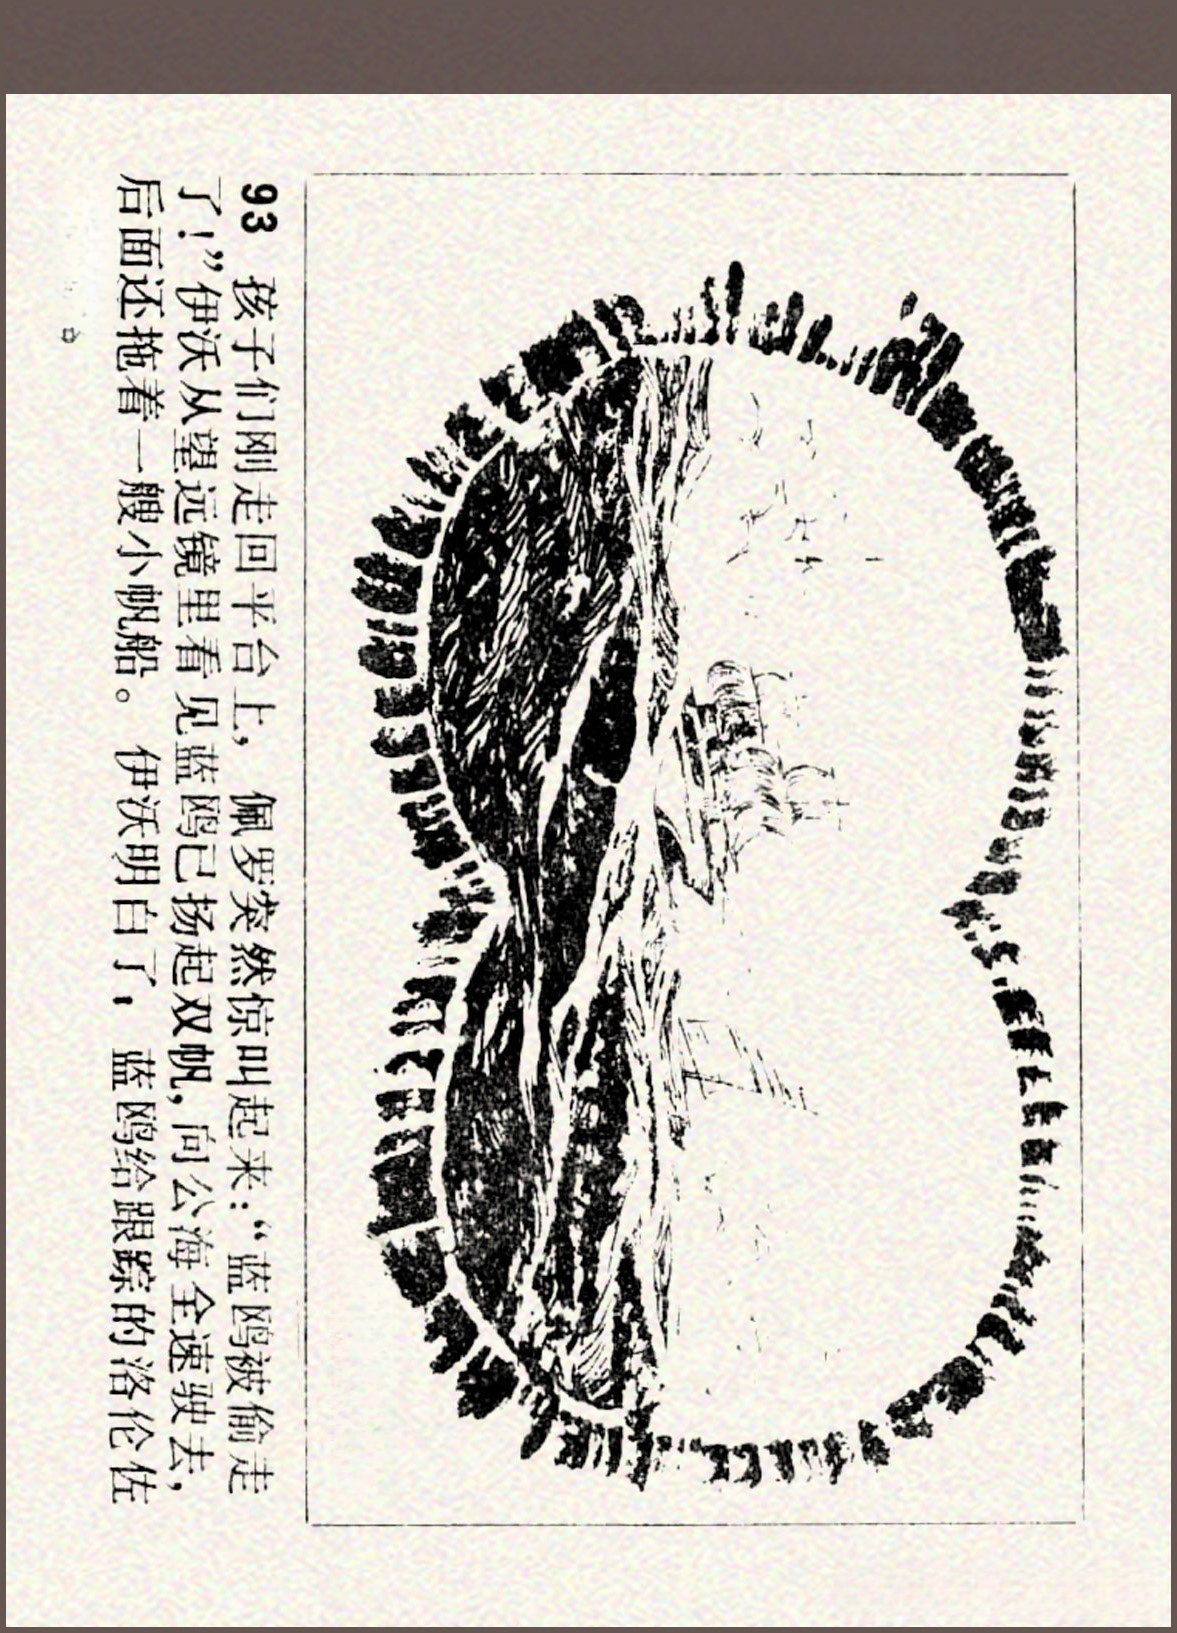 93 孩子们刚走回平台上，佩罗突然惊叫起来：“蓝鸥被偷走
了！”伊沃从望远镜里看见蓝鸥已扬起双帆，向公海全速驶去，
后面还拖着一艘小帆船。伊沃明白了，蓝鸥给跟踪的洛伦佐